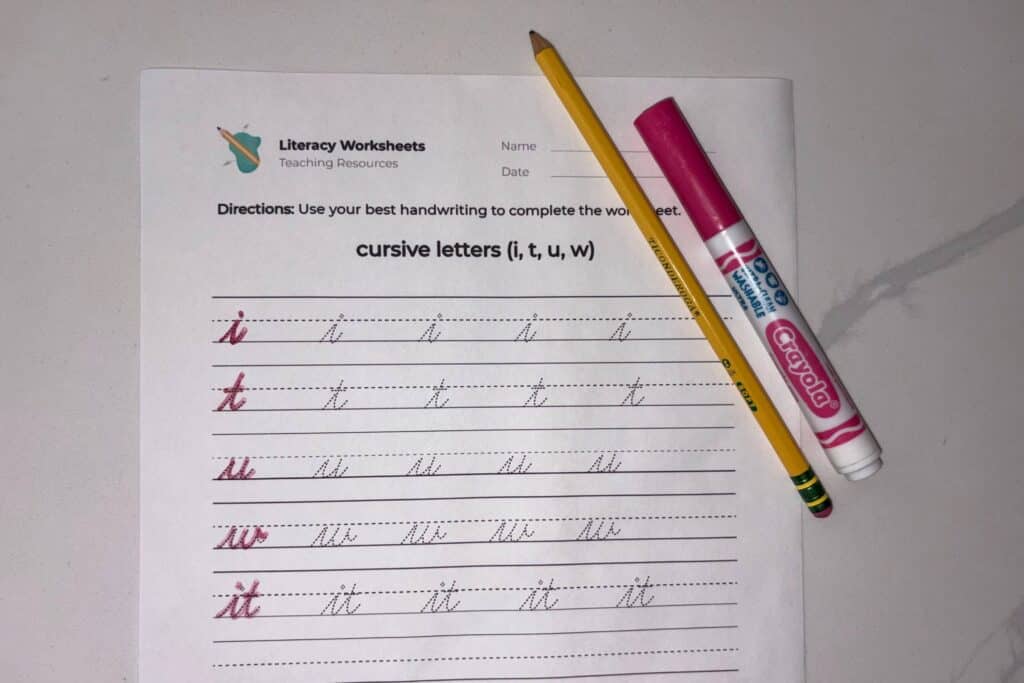 Literacy Worksheets
Teaching Resources
Name
Date
Directions: Use your best handwriting to complete the
cursive letters (i, t, u, w)
TICONDEROGA®
WASHABLE
Crayola®
i i i i i
t t t t t
u u u u u
w w w w w
it it it it it